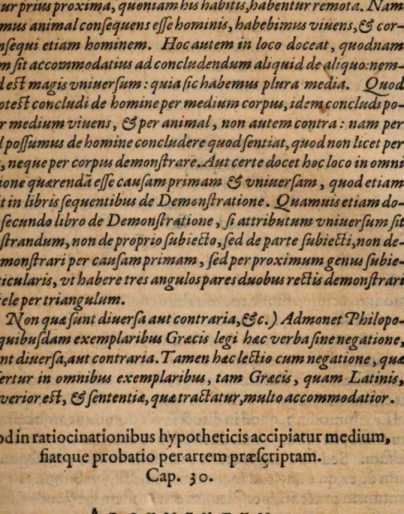 ur prius proxima, quoniam his habitis, habentur remota. Nam
mus animal consequens esse hominis, habebimus viuens, & cor-
nsequi etiam hominem. Hoc autem in loco doceat, quodnam
m sit accommodatius ad concludendum aliquid de aliquo: nem-
d est magis vniuersum: quia sic habemus plura media. Quod
otest concludi de homine per medium corpus, idem concludi po-
r medium viuens, & per animal, non autem contra: nam per
l possumus de homine concludere quod sentiat, quod non licet per
, neque per corpus demonstrare. Aut certe docet hoc loco in omni
ione quærenda esse causam primam & vniuersam, quod etiam
it in libris sequentibus de Demonstratione. Quamuis etiam do-
secundo libro de Demonstratione, si attributum vniuersum sit
strandum, non de proprio subiecto, sed de parte subiecti, non de-
monstrari per causam primam, sed per proximum genus subie-
ticularis, vt habere tres angulos pares duobus rectis demonstrari
cele per triangulum.
Non quæ sunt diuersa aut contraria, &c.) Admonet Philopo-
quibusdam exemplaribus Græcis legi hæc verba sine negatione,
nt diuersa, aut contraria. Tamen hæc lectio cum negatione, quæ
fertur in omnibus exemplaribus, tam Græcis, quam Latinis,
verior est, & sententiæ, quæ tractatur, multo accommodatior.
od in ratiocinationibus hypotheticis accipiatur medium,
fiatque probatio per artem præscriptam.
Cap. 30.